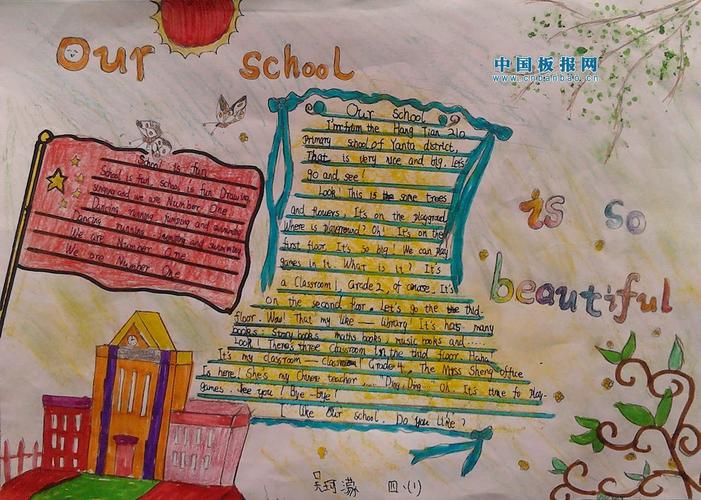 Our school
中国板报网
www.cnbanbao.cn
is so
beautiful
School is fun
School is fun, school is fun. Drawing,
singing and we are Number One.
Dancing running jumping and swimming
We are Number One.
Dancing running jumping and swimming
We are Number One
We are Number One
Our school
I'm from the Hang Tian 210
Primary school of Yanta district,
That is very nice and big. Let's
go and see!
Look! This is the some trees
and flowers. It's on the playground.
Where is playground? Oh! It's on the
first floor. It's so big! We can play
games in it. What is it? It's
a Classroom! Grade 2, of course. It's
on the second floor. Let's go the thid
floor. Wow! That my like — library. It's has many
books. Story books maths books, music books and......
Look! There's three classroom in the third floor. Haha,
It's my classroom — classroom! Grade 4. The Miss Sheng office
Is here! She's my Chinese teacher. "Ding, Ding..." Oh It's time to play
games. See you! Bye-bye!
I like Our school. Do you like?
吴珂濛 四、(1)